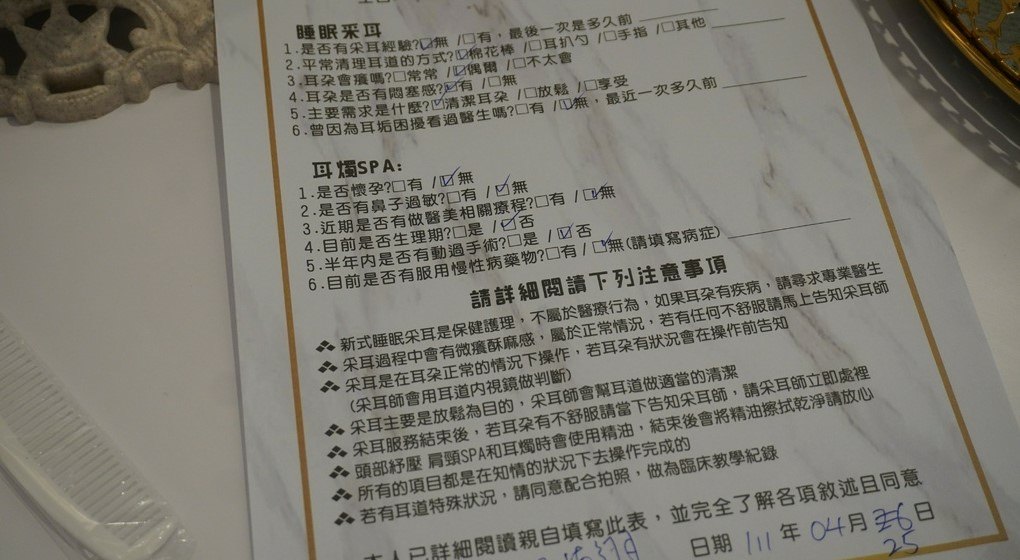 睡眠采耳
1.是否有采耳經驗?☑無 /□有，最後一次是多久前
2.平常清理耳道的方式?☑棉花棒 /□耳扒勺 /□手指 /□其他
3.耳朶會癢嗎?□常常 /☑偶爾 /□不太會
4.耳朶是否有悶塞感?☑有 /□無
5.主要需求是什麼?☑清潔耳朶 /□放鬆 /□享受
6.曾因為耳垢困擾看過醫生嗎?□有 /☑無，最近一次多久前
耳燭SPA:
1.是否懷孕?□有 /☑無
2.是否有鼻子過敏?□有 /☑無
3.近期是否有做醫美相關療程?□有 /☑無
4.目前是否生理期?□是 /☑否
5.半年內是否有動過手術?□是 /☑否
6.目前是否有服用慢性病藥物?□有 /☑無(請填寫病症)
請詳細閱請下列注意事項
新式睡眠采耳是保健護理，不屬於醫療行為，如果耳朶有疾病，請尋求專業醫生
采耳過程中會有微癢酥麻感，屬於正常情況，若有任何不舒服請馬上告知采耳師
采耳是在耳朶正常的情況下操作，若耳朶有狀況會在操作前告知
(采耳師會用耳道內視鏡做判斷)
采耳主要是放鬆為目的，采耳師會幫耳道做適當的清潔
采耳服務結束後，若耳朶有不舒服請當下告知采耳師，請采耳師立即處裡
頭部紓壓 肩頸SPA和耳燭時會使用精油，結束後會將精油擦拭乾淨請放心
所有的項目都是在知情的狀況下去操作完成的
若有耳道特殊狀況，請同意配合拍照，做為臨床教學紀錄
本人已詳細閱讀親自填寫此表，並完全了解各項敘述且同意
日期 111 年 04月 25日